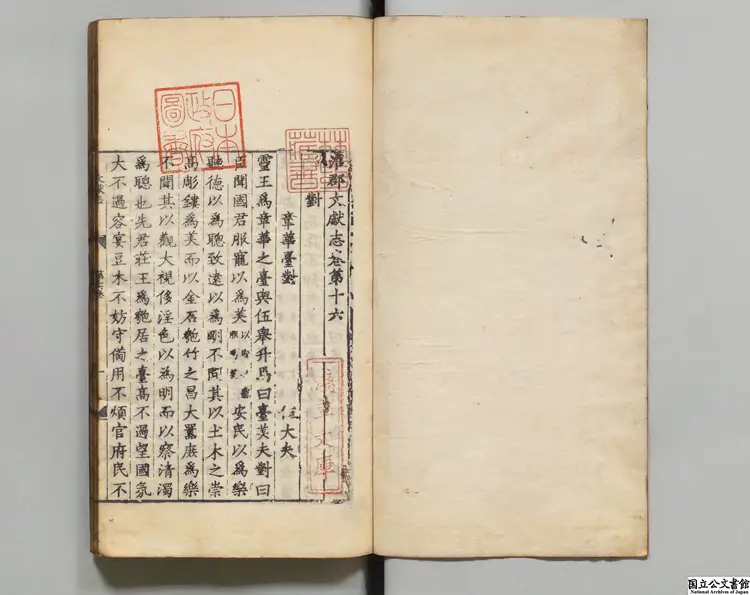 淮郡文獻志卷第十六
對
章華臺對 大夫
靈王為章華之臺與伍舉升焉曰臺美夫對曰
臣聞國君服寵以為美 安民以為樂
聽德以為聰致遠以為明不聞其以土木之崇
高彫鏤為美而以金石匏竹之昌大囂庶為樂
不聞其以觀大視侈淫色以為明而以察清濁
為聰也先君莊王為匏居之臺高不過望國氛
大不過容宴豆木不妨守備用不煩官府民不
日本
政府
圖書
林氏
藏書
文庫
国立公文書館
National Archives of Japan